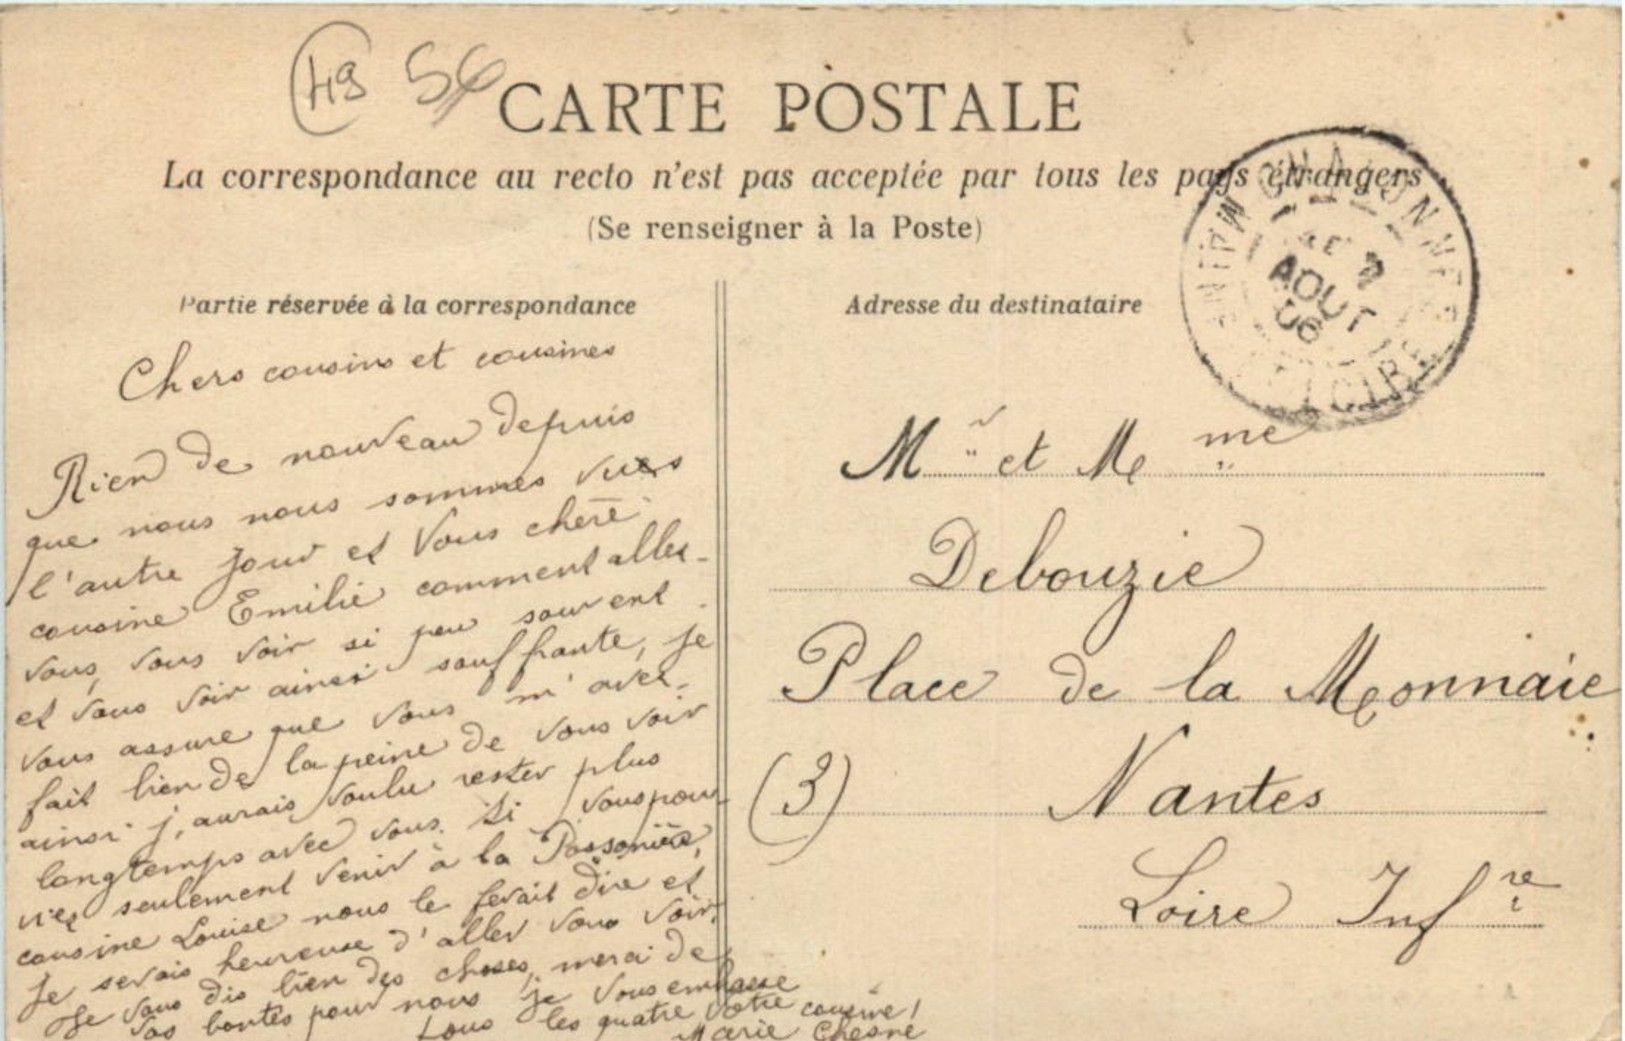 49 56
CARTE POSTALE
La correspondance au recto n'est pas acceptée par tous les pays étrangers
(Se renseigner à la Poste)
Partie réservée à la correspondance
Chers cousins et cousines
Rien de nouveau depuis
que nous nous sommes vues
l'autre jour et vous chère
cousine Emilie comment allez-
vous, vous voir si peu souvent
et vous voir ainsi souffrante, je
vous assure que vous m'avez
fait bien de la peine de vous voir
ainsi j'aurais voulu rester plus
longtemps avec vous. Si vous pouv-
iez seulement venir à la Possonière,
cousine Louise nous le ferait dire et
je serais heureuse d'aller vous voir,
Je vous dis bien des choses, merci de
vos bontés pour nous je vous embrasse
tous les quatre votre cousine!
Marie Chesné
Adresse du destinataire
CHALONNES
MAINE
LOIRE
AOUT
06
Mr et Mme
Debouzie
Place de la Monnaie
(3) Nantes
Loire Infre